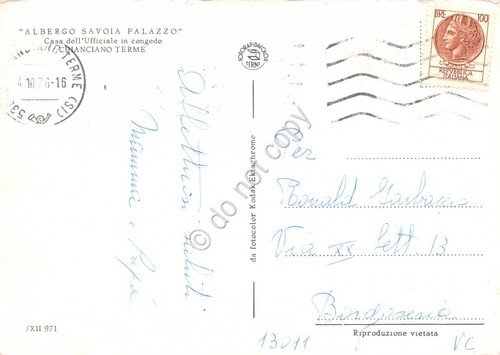 "ALBERGO SAVOIA PALAZZO"
Casa dell'Ufficiale in congedo
CHIANCIANO TERME
CHIANCIANO TERME (SI)
4.10.76-16
530
TERNI
LIRE 100
REPVBBLICA
ITALIANA
Affettuosi saluti
Mamma e Papà
da fotocolor Kodak Ektachrome
do not copy
Per
Ronald
Via XX Sett. 13
13011
VC
/XII 971
Riproduzione vietata